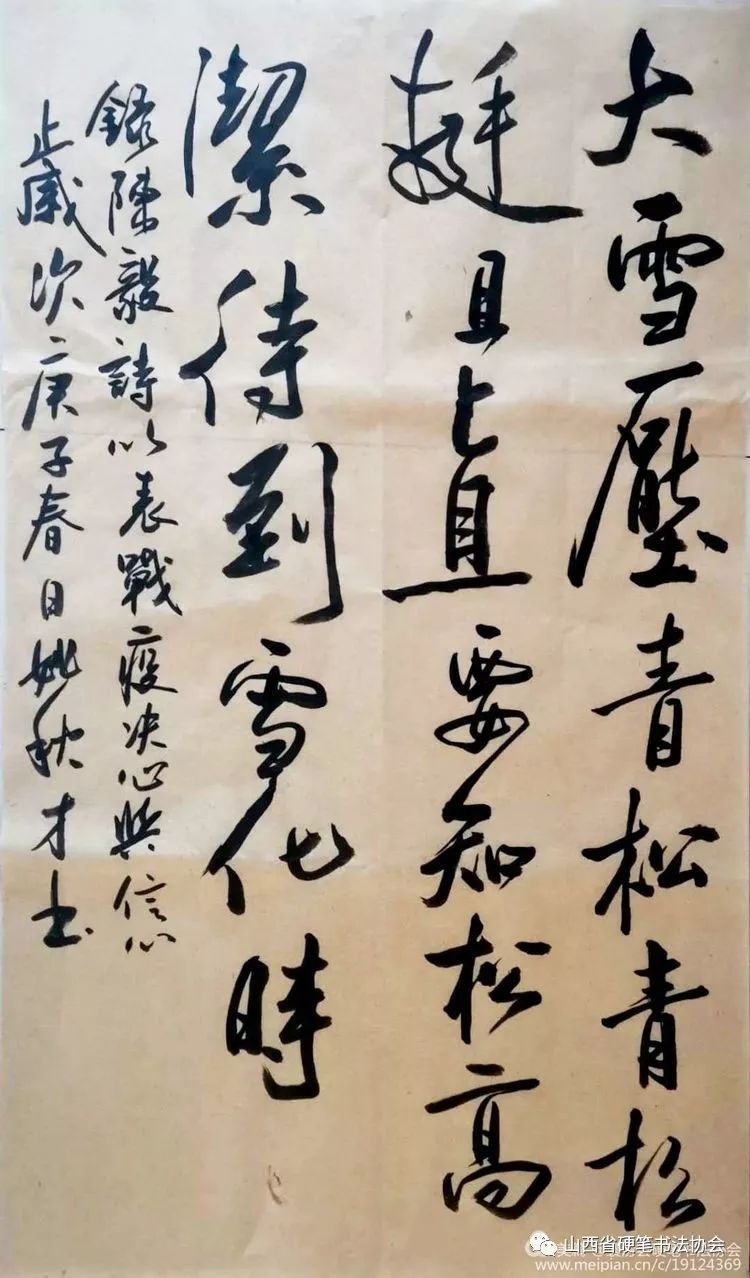 大雪壓青松青松
挺且直要知松高
潔待到雪化時
錄陳毅詩以表戰疫决心與信心
歲次庚子春日姚秋才书
山西省硬笔书法协会
www.meipian.cn/c/19124369